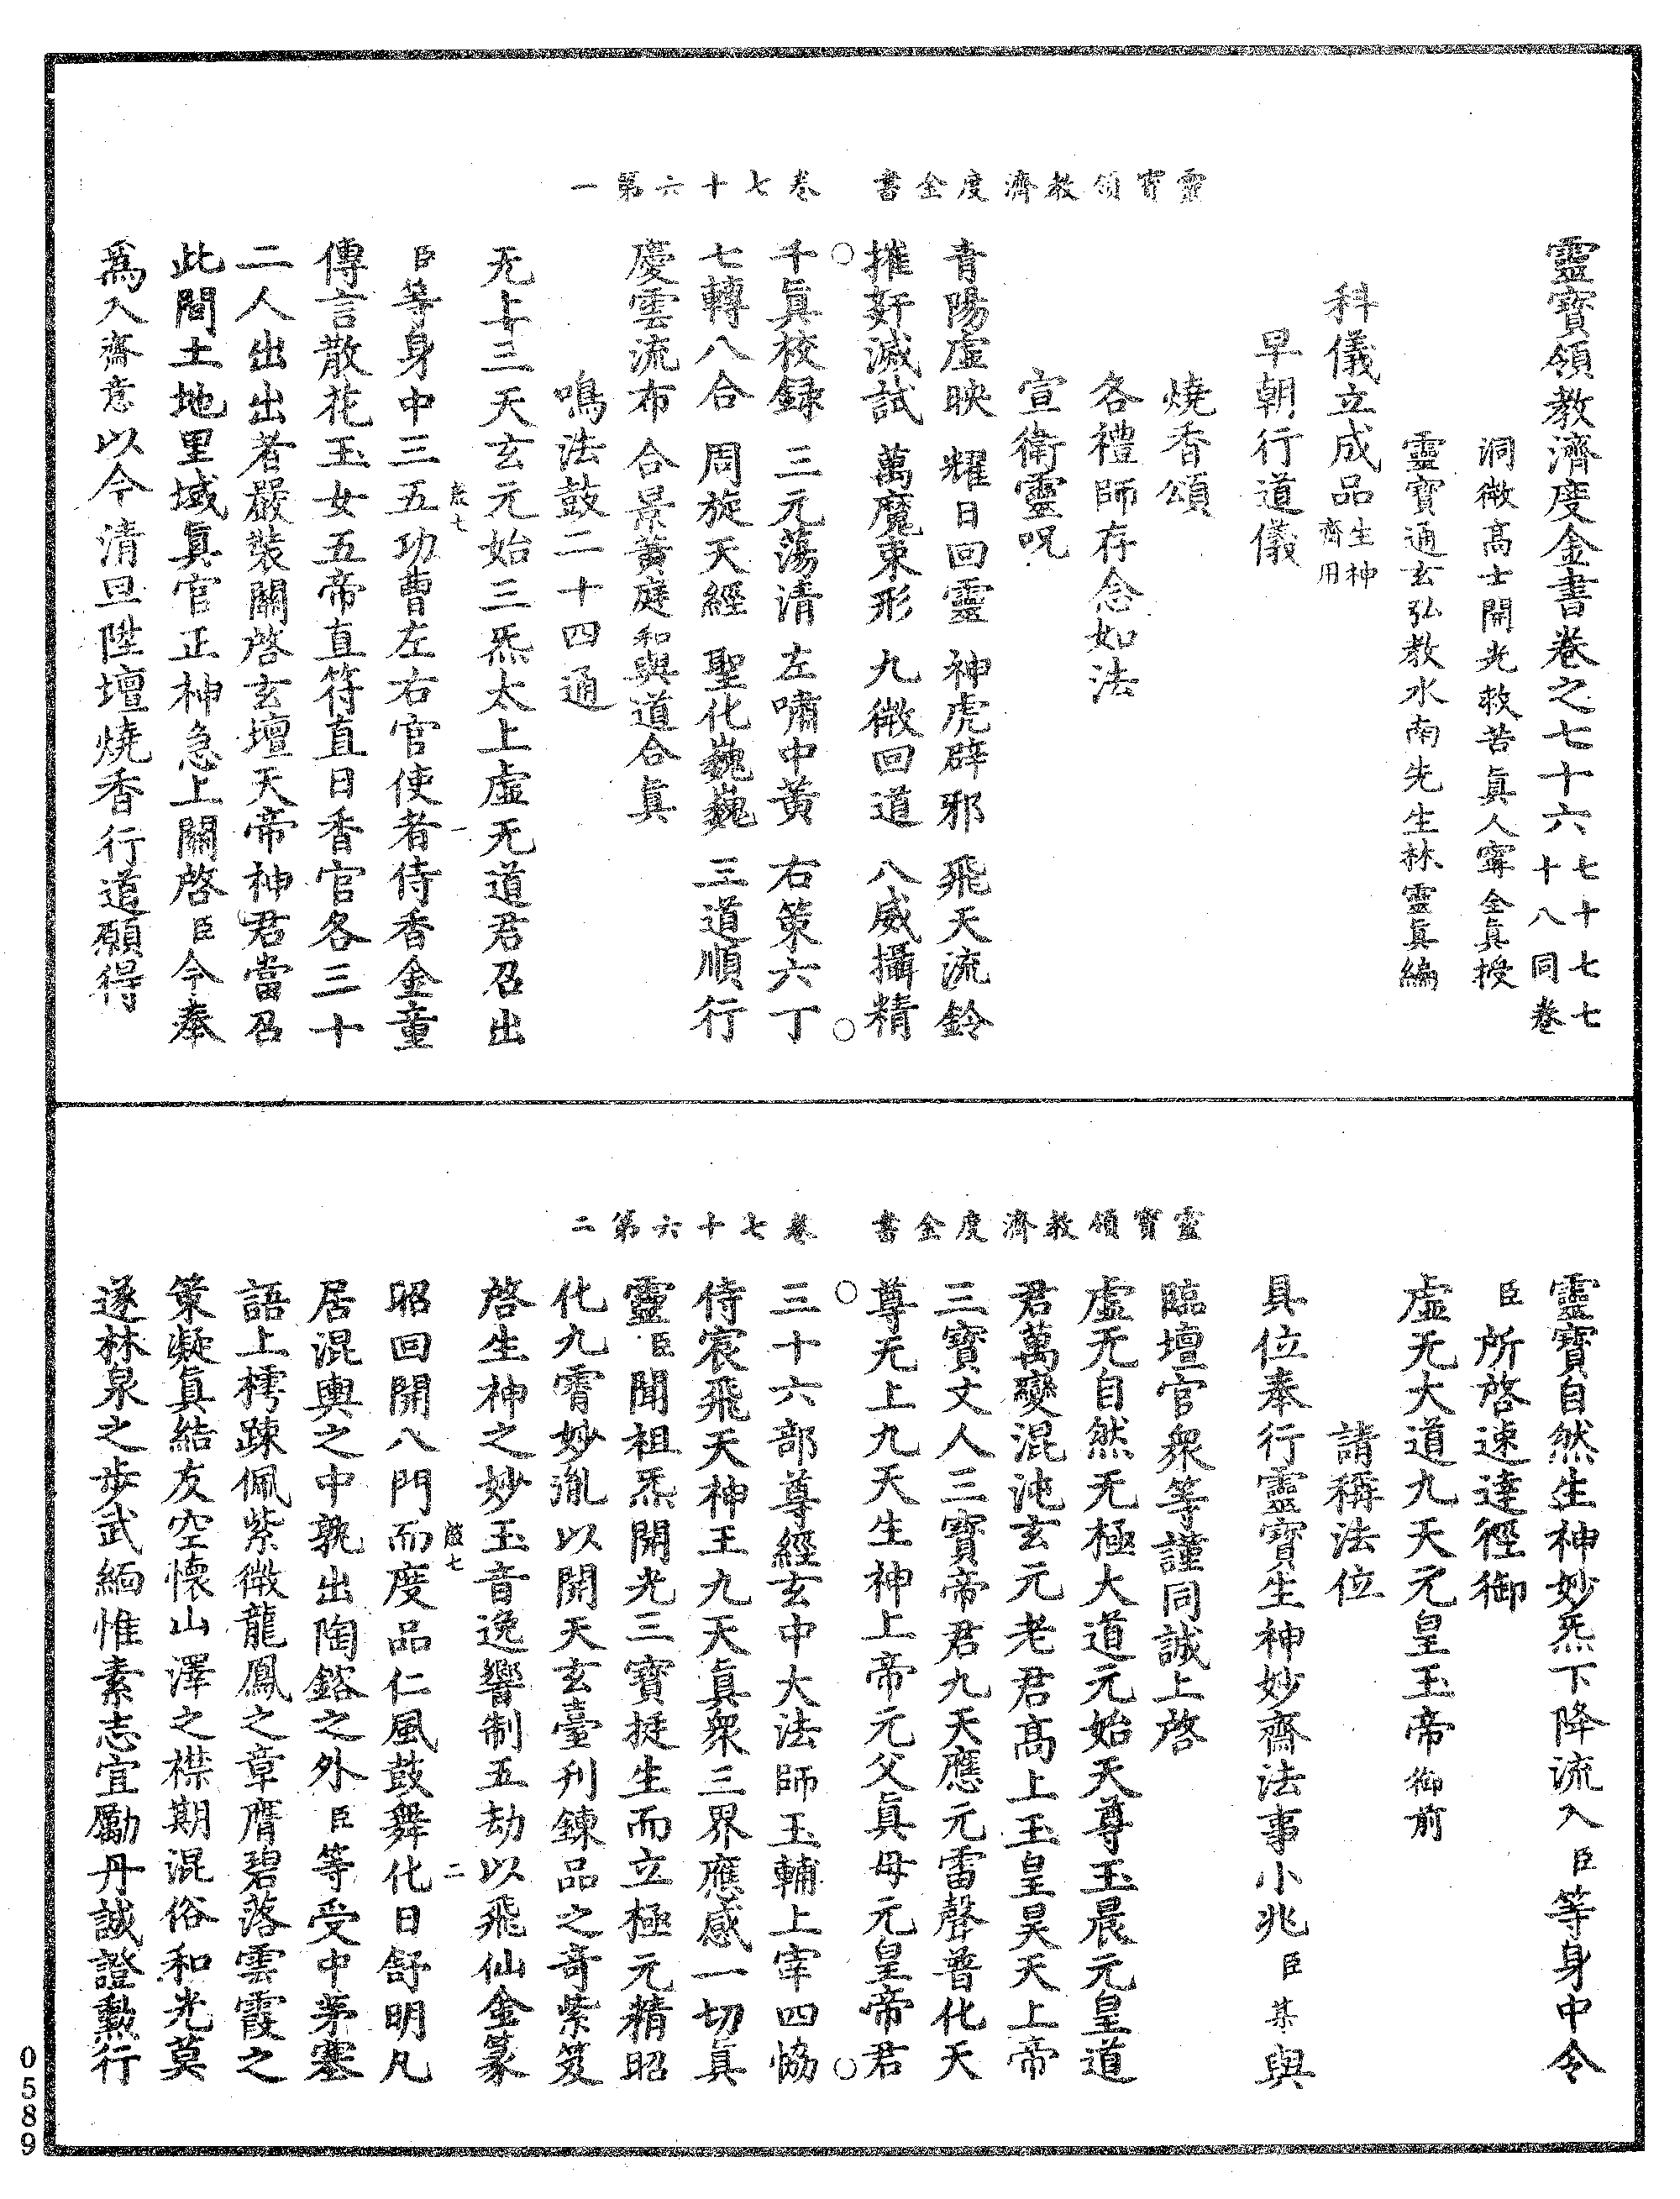 靈寶領教濟度金書卷之七十六七十七七十八同卷
洞微高士開光救苦真人寗全真授
靈寶通玄弘教水南先生林靈真編
科儀立成品生神齋用
早朝行道儀
燒香頌
各禮師存念如法
宣衛靈呪
青陽虛映 耀日回靈 神虎辟邪 飛天流鈴
摧奸滅試 萬魔束形 九微回道 八威攝精
靈寶領教濟度金書 卷七十六第一
千眞校録 三元蕩清 左嘯中黃 右策六丁
七轉八合 周旋天經 聖化巍巍 三道順行
慶雲流布 合景黃庭 和與道合眞
鳴法鼓二十四通
无上三天玄元始三炁太上虛无道君召出
臣等身中三五功曹左右官使者侍香金童
傳言散花玉女五帝直符直日香官各三十
二人出出者嚴裝關啓玄壇天帝神君當召
此間土地里域眞官正神急上關啓臣今奉
爲入齋意以今清旦陞壇燒香行道願得
靈寶自然生神妙炁下降流入臣等身中令
臣所啓速達徑御
虛无大道九天元皇玉帝御前
請稱法位
具位奉行靈寶生神妙齋法事小兆臣某與
臨壇官衆等謹同誠上啓
虛无自然无極大道元始天尊玉晨元皇道
君萬變混沌玄元老君高上玉皇昊天上帝
三寶丈人三寶帝君九天應元雷聲普化天
尊无上九天生神上帝元父眞母元皇帝君
靈寶領教濟度金書 卷七十六第二
三十六部尊經玄中大法師玉輔上宰四恊
侍宸飛天神王九天眞衆三界應感一切眞
靈臣聞祖炁開光三寶挺生而立極元精昭
化九霄妙胤以開天玄臺刋鍊品之奇紫笈
啓生神之妙玉音逸響制五劫以飛仙金篆
昭回開八門而度品仁風鼓舞化日舒明凡
居混輿之中孰出陶鎔之外臣等受中茅塞
語上樗踈佩紫微龍鳳之章膺碧落雲霞之
策凝眞結友空懷山澤之襟期混俗和光莫
遂林泉之步武緬惟素志宜勵丹誠證勲行
0589